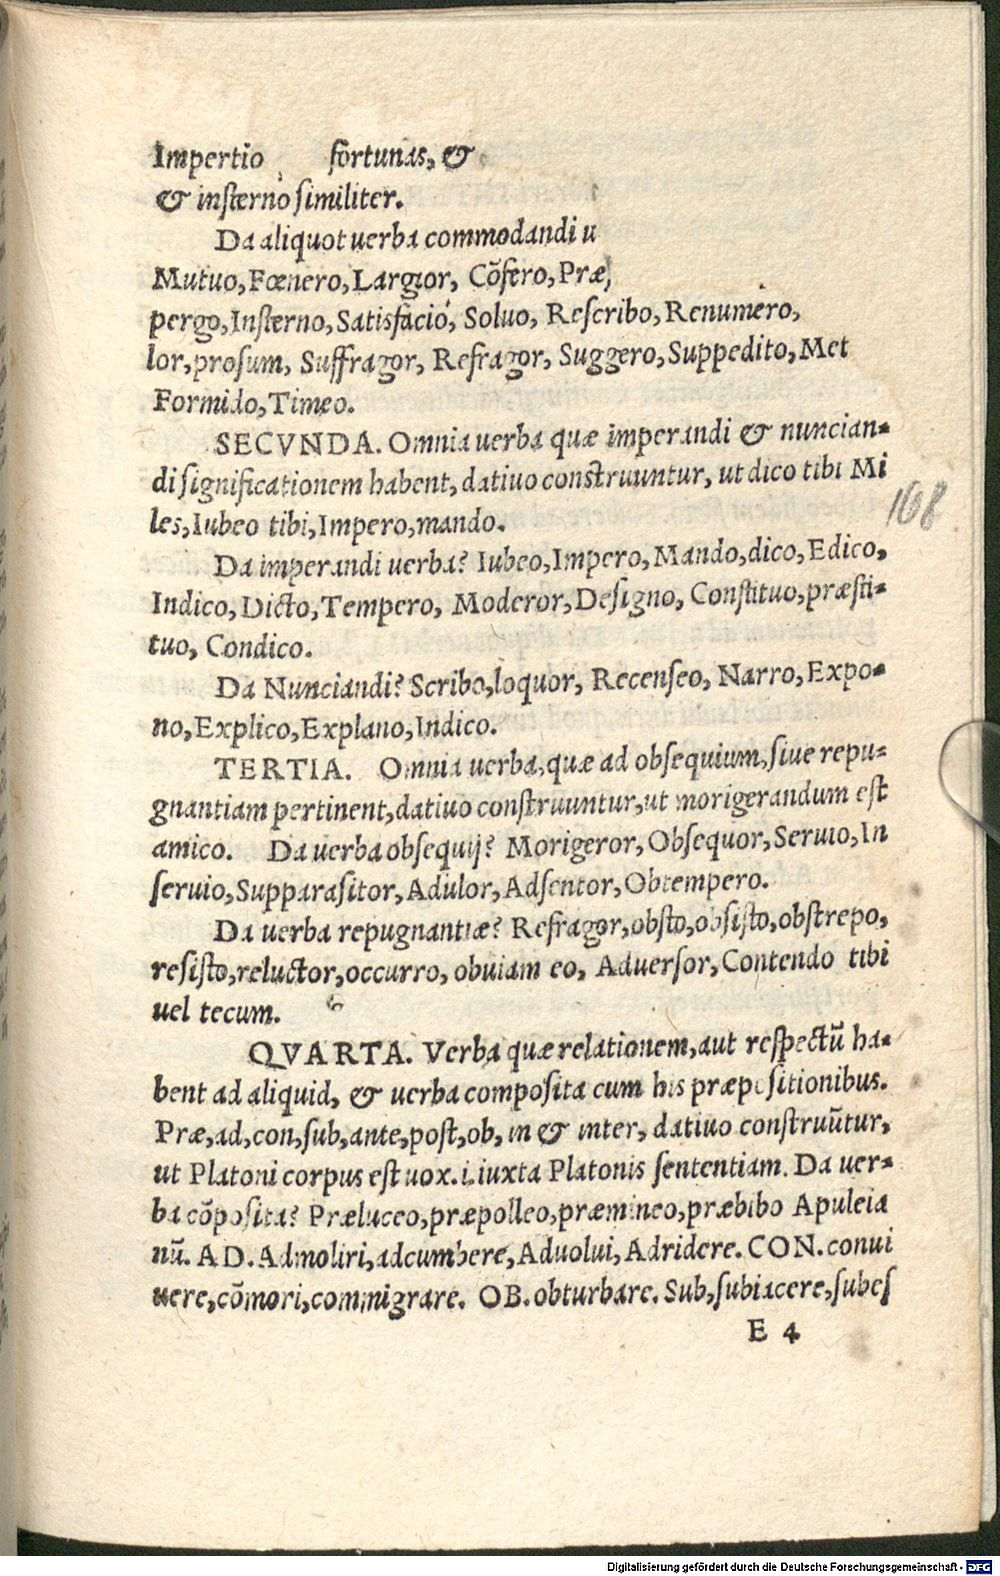 Impertio fortunas, &
& insterno similiter.
Da aliquot uerba commodandi u
Mutuo, Fœnero, Largior, Cōfero, Præ
pergo, Insterno, Satisfacio, Soluo, Rescribo, Renumero,
lor, prosum, Suffragor, Refragor, Suggero, Suppedito, Met
Formido, Timeo.
SECVNDA. Omnia uerba quæ imperandi & nuncian=
di significationem habent, datiuo construuntur, ut dico tibi Mi
les, Iubeo tibi, Impero, mando.
168
Da imperandi uerba? Iubeo, Impero, Mando, dico, Edico,
Indico, Dicto, Tempero, Moderor, Designo, Constituo, præsti=
tuo, Condico.
Da Nunciandi? Scribo, loquor, Recenseo, Narro, Expo=
no, Explico, Explano, Indico.
TERTIA. Omnia uerba, quæ ad obsequium, siue repu=
gnantiam pertinent, datiuo construuntur, ut morigerandum est
amico. Da uerba obsequij? Morigeror, Obsequor, Seruio, In
seruio, Supparasitor, Adulor, Adsentor, Obtempero.
Da uerba repugnantiæ? Refragor, obsto, obsisto, obstrepo,
resisto, reluctor, occurro, obuiam eo, Aduersor, Contendo tibi
uel tecum.
QVARTA. Verba quæ relationem, aut respectū ha=
bent ad aliquid, & uerba composita cum his præpositionibus.
Præ, ad, con, sub, ante, post, ob, in & inter, datiuo construūtur,
ut Platoni corpus est uox. i. iuxta Platonis sententiam. Da uer=
ba cōposita? Præluceo, præpolleo, præmineo, præbibo Apuleia
nū. AD. Admoliri, adcumbere, Aduolui, Adridere. CON. conui
uere, cōmori, commigrare. OB. obturbare. Sub, subiacere, subes
E 4
Digitalisierung gefördert durch die Deutsche Forschungsgemeinschaft - DFG